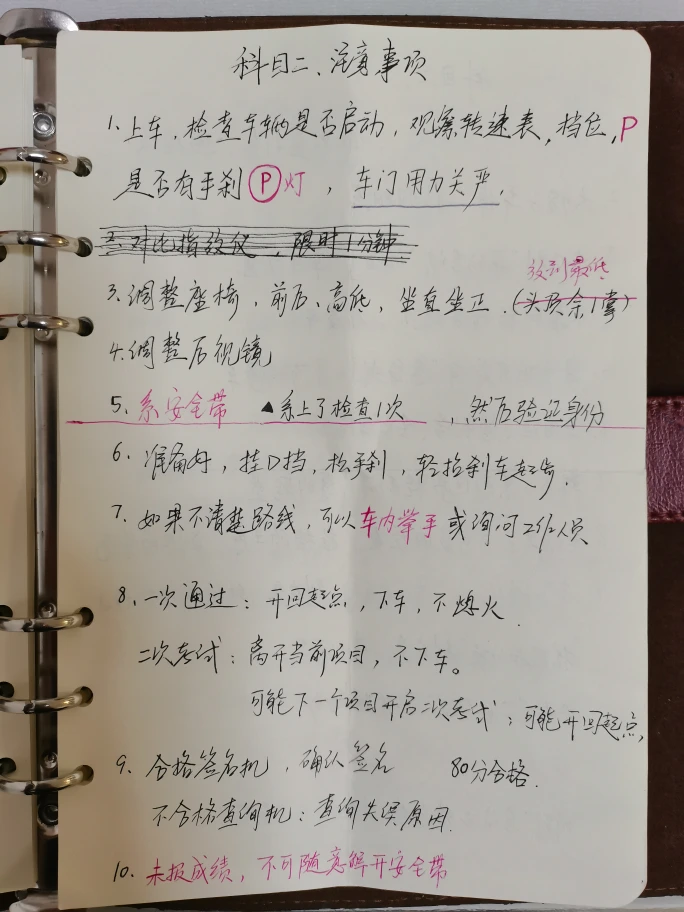 科目二、注意事项
1、上车，检查车辆是否启动，观察转速表，挡位，P
是否有手刹Ⓟ灯，车门用力关严，
2、对比指纹仪，限时1分钟
放到最低
3、调整座椅，前后、高低，坐直坐正．（头顶余1掌）
4、调整后视镜
5、系安全带 ▲系上了检查1次，然后验证身份
6、准备好，挂D挡，松手刹，轻抬刹车起步．
7、如果不清楚路线，可以车内举手或询问工作人员
8、一次通过：开回起点，下车，不熄火．
二次考试：离开当前项目，不下车。
可能下一个项目开启二次考试；可能开回起点，
9、合格签名机，确认签名 80分合格．
不合格查询机：查询失误原因．
10、未报成绩，不可随意解开安全带